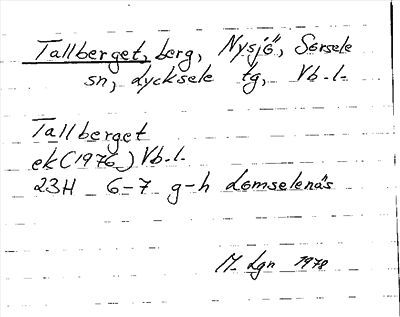 Tallberget, berg, Nysjö, Sorsele
sn, Lycksele tg, Vb.l.
Tallberget
ek (1976) Vb.l.
23H 6-7 g-h Lomselenäs
M. Lgn 1978